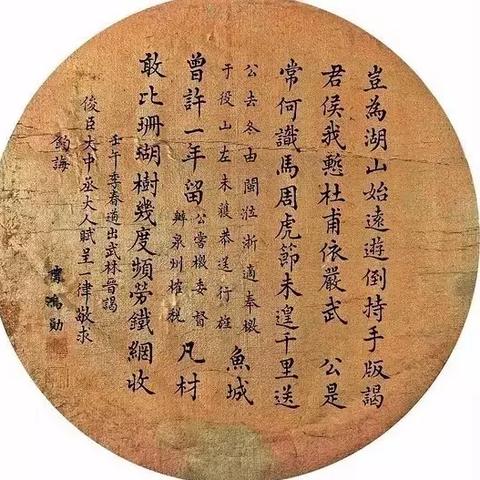 豈為湖山始遠遊倒持手版謁
君侯我慙杜甫依嚴武 公是
常何識馬周虎節未遑千里送
公去冬由閩涖浙適奉檄
于役山左未獲恭送行旌
魚城
曾許一年留
公嘗檄委督
辦泉州榷税
凡材
敢比珊瑚樹幾度頻勞鐵網收
壬午季春道出武林晉謁
俊臣大中丞大人賦呈一律敬求
鈞誨
鴻勛